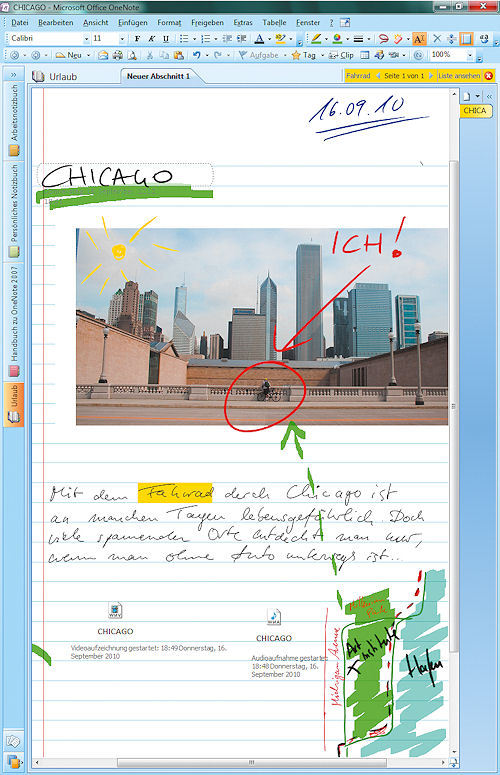 CHICAGO - Microsoft Office OneNote
Datei Bearbeiten Ansicht Einfügen Format Freigeben Extras Tabelle Fenster ?
Calibri 11 F K U
Neu Aufgabe Tag Clip 100%
Urlaub Neuer Abschnitt 1 Fahrrad Seite 1 von 1 Liste ansehen
CHICA
Arbeitsnotizbuch
Persönliches Notizbuch
Handbuch zu OneNote 2007
Urlaub
16.09.10
CHICAGO
ICH!
Mit dem Fahrrad durch Chicago ist
an manchen Tagen lebensgefährlich. Doch
viele spannenden Orte entdeckt man nur,
wenn man ohne Auto unterwegs ist...
CHICAGO
Videoaufzeichnung gestartet: 18:49 Donnerstag, 16.
September 2010
CHICAGO
Audioaufnahme gestartet:
18:48 Donnerstag, 16.
September 2010
Michigan Avenue
Art
Institute
Hafen